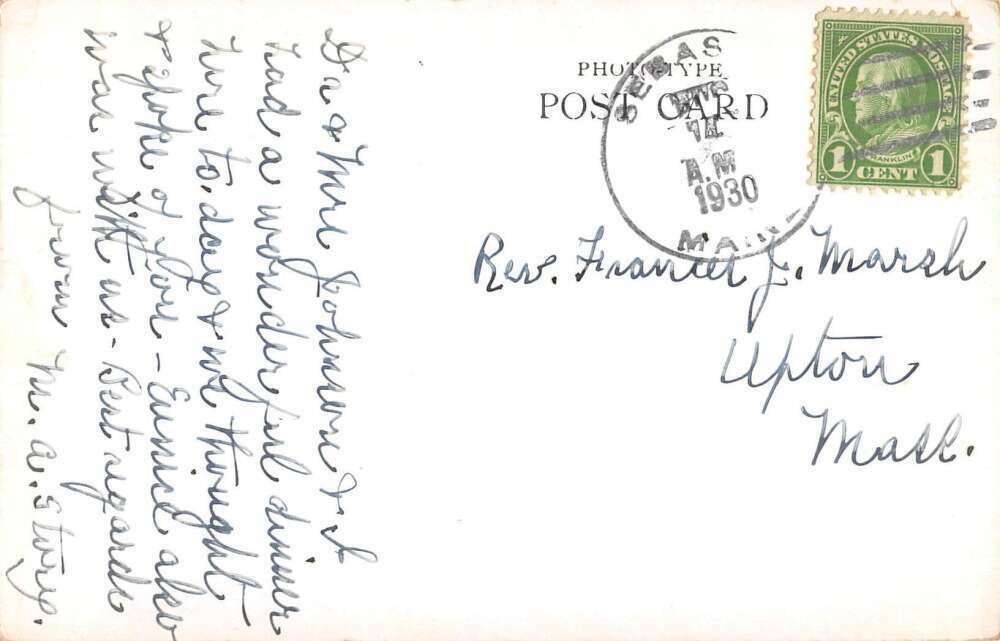 PHOTO-TYPE
POST CARD
SEBAS
AUG
14
A.M
1930
MAINE
UNITED STATES POSTAGE
FRANKLIN
1 CENT 1
Rev. Frances J. Marsh
Upton
Mass.
Dr & Mrs Johnson & I
had a wonderful dinner
here to-day & we thought
& spoke of you - Eunice also
was with us - Best regards
from M. A. Story.